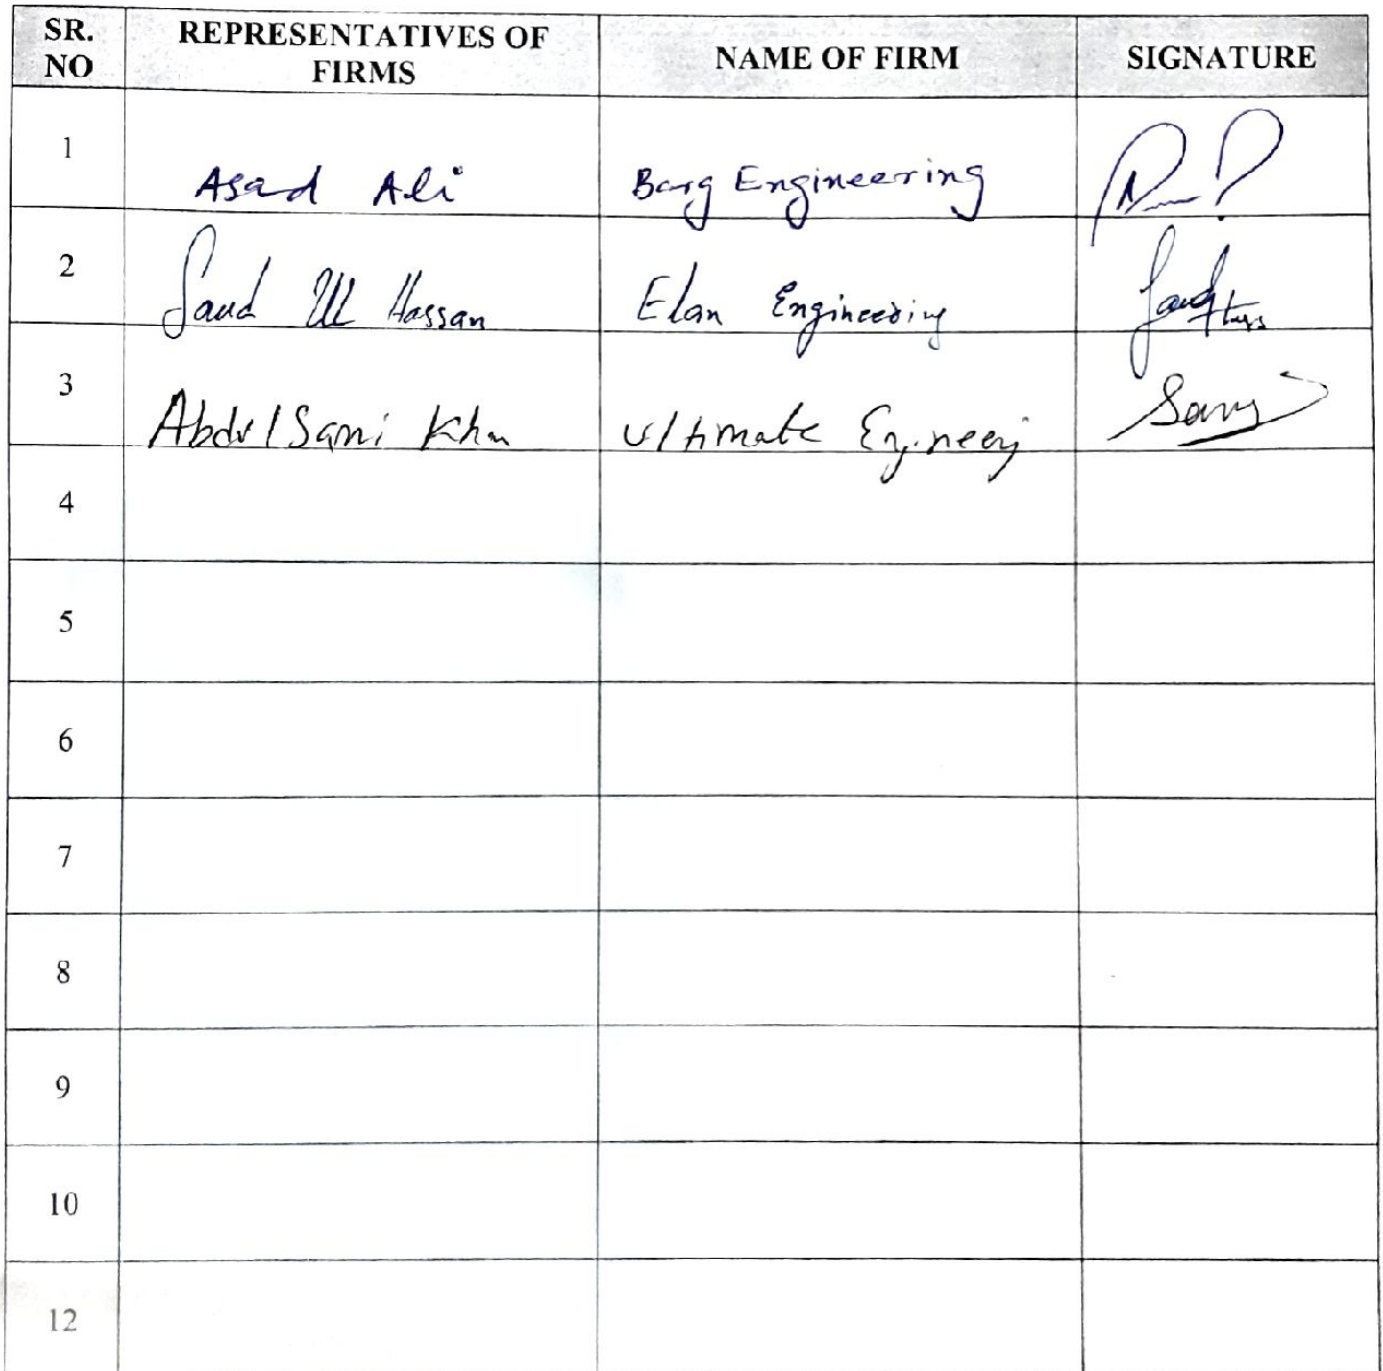 SR. NO REPRESENTATIVES OF FIRMS NAME OF FIRM SIGNATURE
1 Asad Ali Barg Engineering
2 Saud Ul Hassan Elan Engineering
3 Abdul Sami Khan Ultimate Engineering
4
5
6
7
8
9
10
12